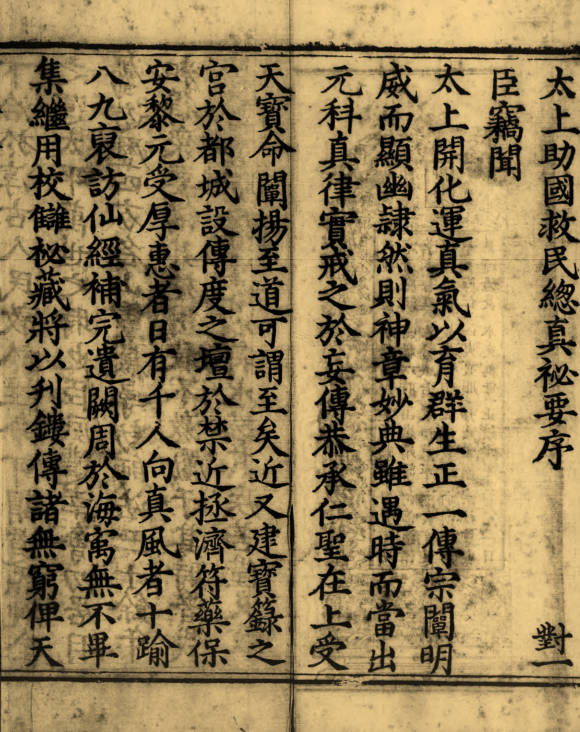 太上助國救民總真祕要序
對一
臣竊聞
太上開化運真氣以育群生正一傳宗闡明
威而顯幽隸然則神章妙典雖遇時而當出
元科真律實戒之於妄傳恭承仁聖在上受
天寶命闡揚至道可謂至矣近又建寶籙之
宮於都城設傳度之壇於禁近拯濟符藥保
安黎元受厚惠者日有千人向真風者十踰
八九裒訪仙經補完遺闕周於海寓無不畢
集繼用校讎祕藏將以刋鏤傳諸無窮俾天